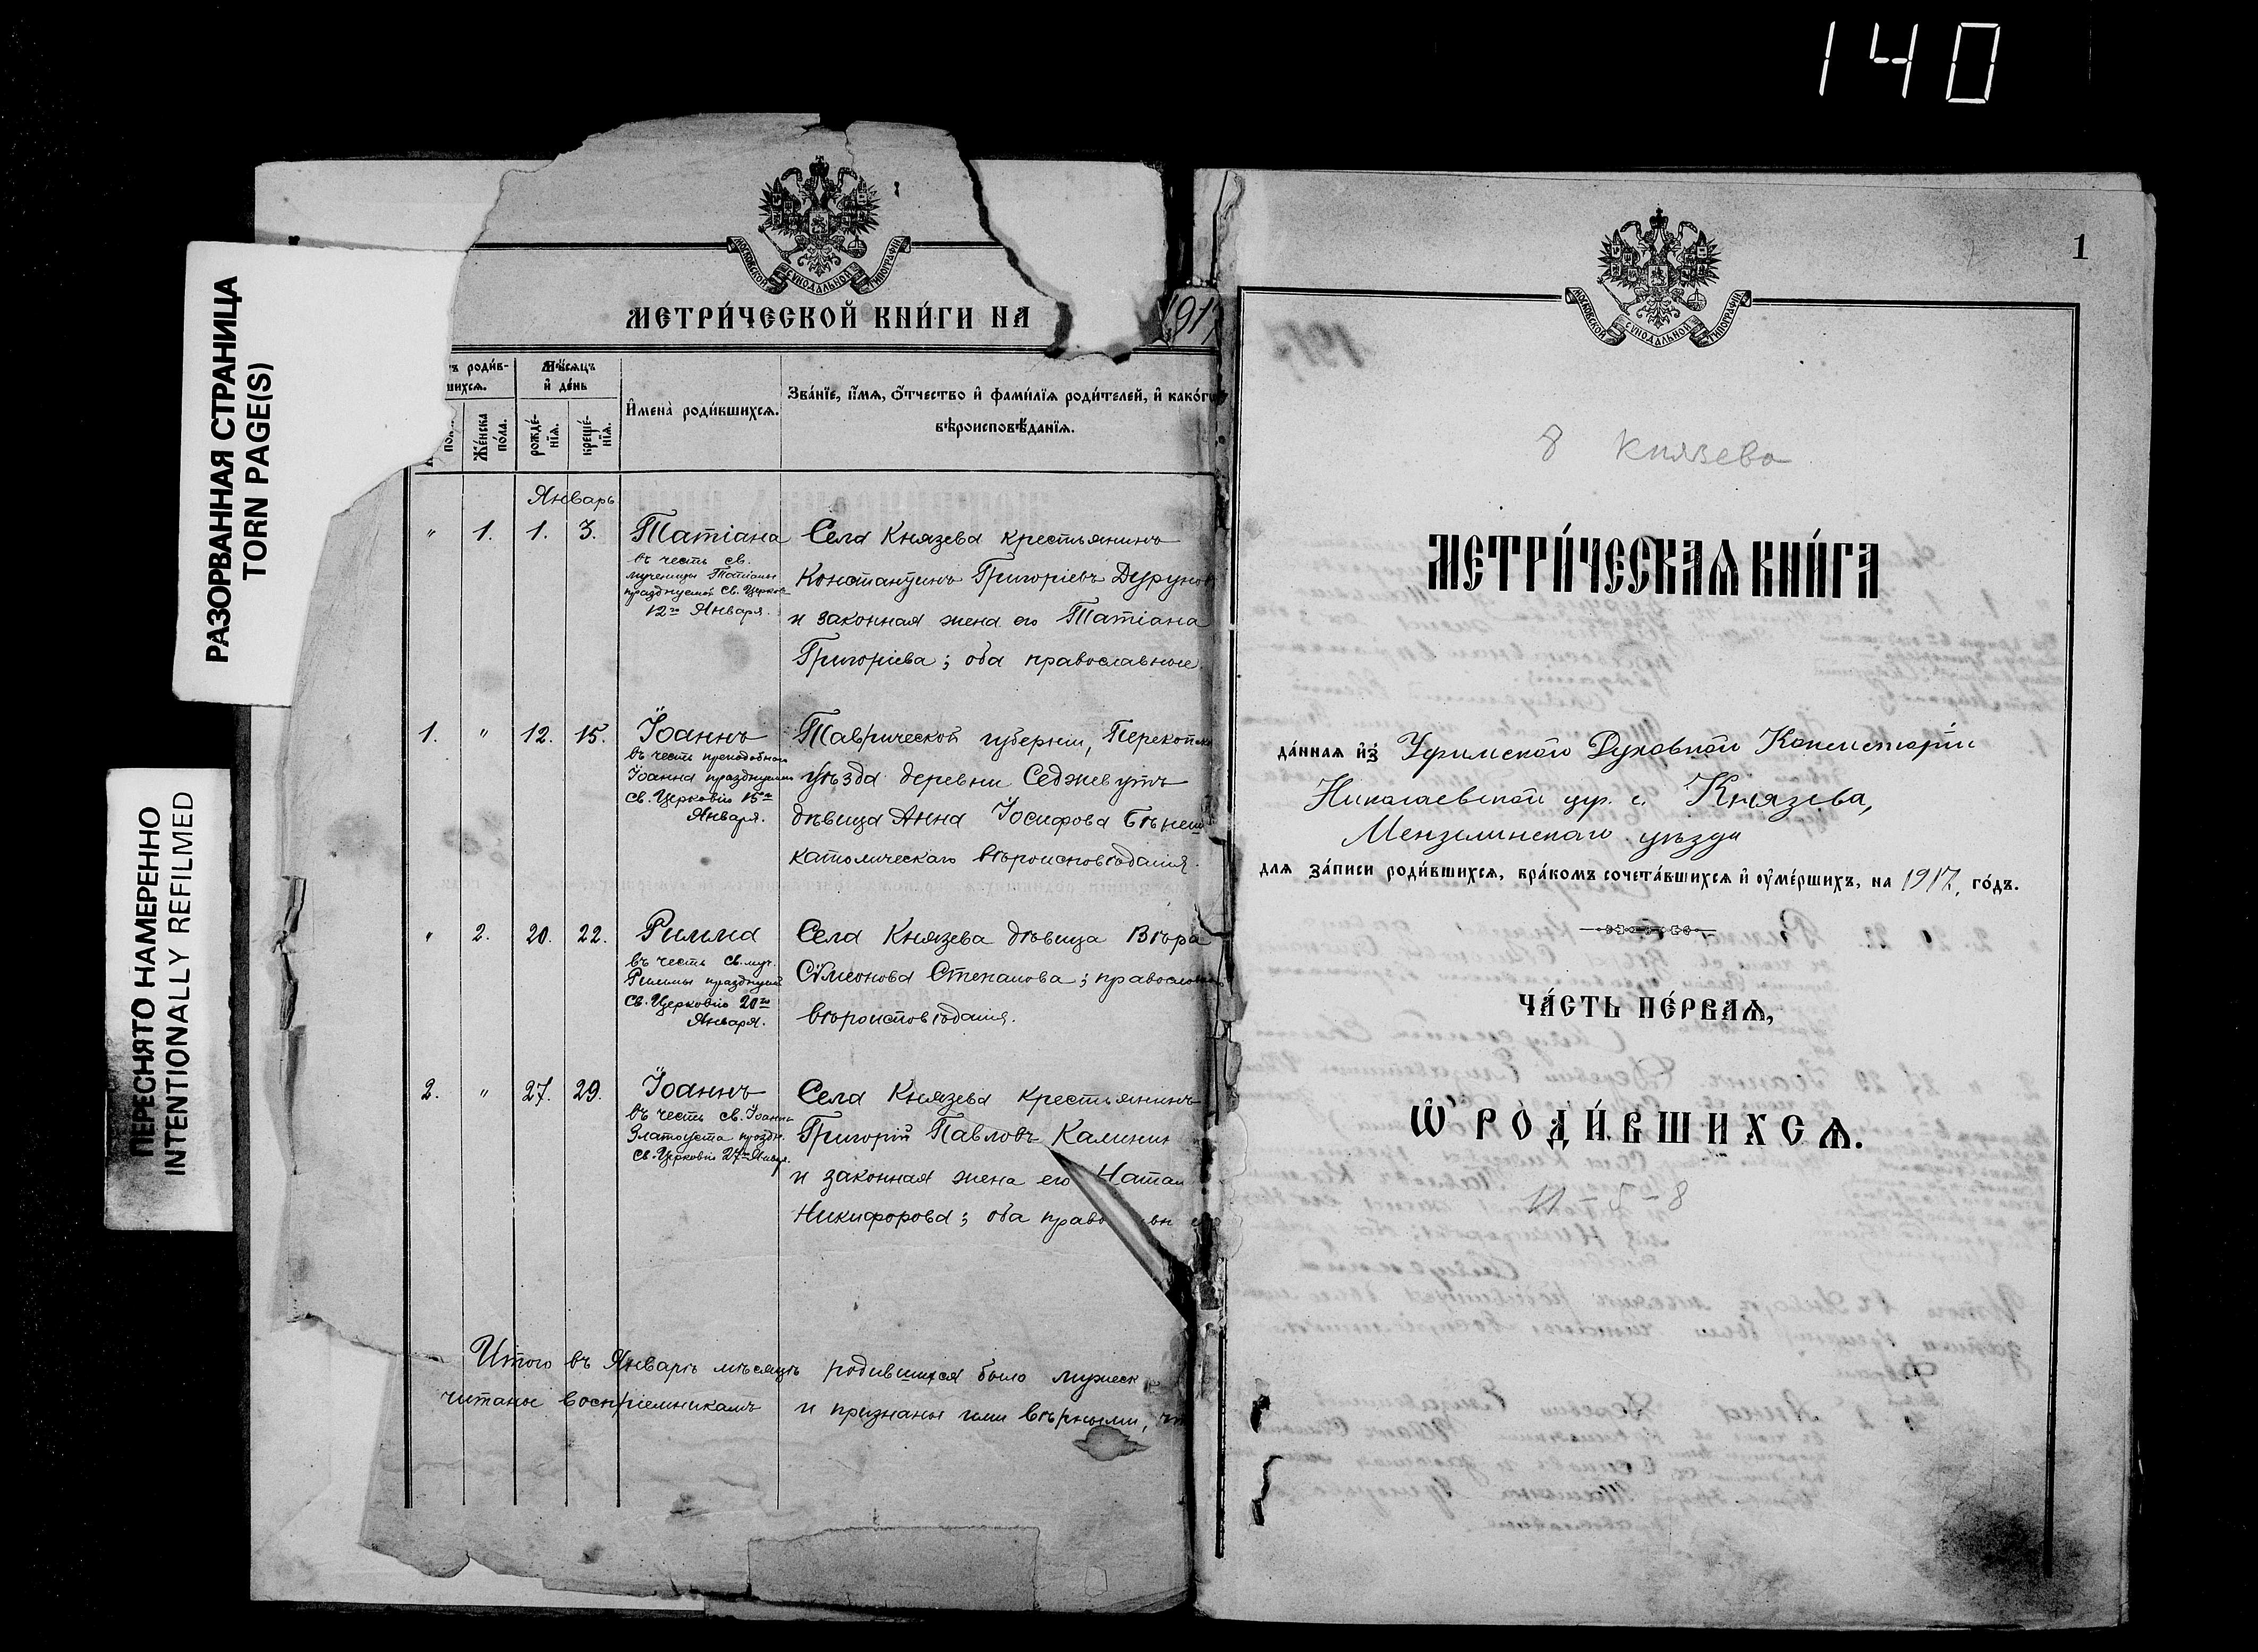 140
РАЗОРВАННАЯ СТРАНИЦА
TORN PAGE(S)
ПЕРЕСНЯТО НАМЕРЕННО
INTENTIONALLY REFILMED
МОСКОВСКОЙ СѴНОДАЛЬНОЙ ТИПОГРАФІИ
МЕТРИ́ЧЕСКОЙ КНИ́ГИ НА 1917
ъ роди́в-
шихсѧ.
Мѣ́сѧцъ
и҆ де́нь
Же́нска
по́ла.
рожде́-
нїѧ.
креще́-
нїѧ.
И҆мена̀ роди́вшихсѧ.
Зва́нїе, и҆́мѧ, ѻ҆́тчество и҆ фами́лїѧ роди́телей, и҆ како́гѡ
вѣроисповѣ́данїѧ.
Январь
" 1. 1. 3. Татіана
въ честь св.
мученицы Татіаны
празднуемой св. Церков
12го Января.
Села Князева крестьянинъ
Константинъ Григоріевъ Дурунов
и законная жена его Татіана
Григоріева; оба православные.
1. " 12. 15. Іоаннъ
въ честь преподобнаго
Іоанна празднуемаго
св. Церковію 15го
Января.
Таврической губерніи, Перекопск
уѣзда деревни
дѣвица Анна Іосифова
католическаго вѣроисповѣданія.
" 2. 20. 22. Римма
въ честь св. муч.
Риммы празднуем
св. Церковію 20го
Января.
Села Князева дѣвица Вѣра
Сѵмеонова Степанова; православнаго
вѣроисповѣданія.
2. " 27. 29. Іоаннъ
въ честь св. Іоанна
Златоуста праздн.
св. Церковію 27го Января.
Села Князева крестьянинъ
Григорій Павловъ Калинин
и законная жена его Натал
Никифорова; оба право вн
Итого въ Январѣ мѣсяцѣ родившихся было мужеск
читаны воспріемникамъ и признаны ими вѣрными,
1
МОСКОВСКОЙ СѴНОДАЛЬНОЙ ТИПОГРАФІИ
8 Князево
МЕТРИ́ЧЕСКАѦ КНИ́ГА
да́ннаѧ и҆з̾ Уфимской Духовной Консисторіи
Николаевской цер. с. Князева,
Мензелинскаго уѣзда
длѧ за́писи роди́вшихсѧ, бра́комъ сочета́вшихсѧ и҆ ᲂу҆ме́ршихъ, на 1917. го́дъ.
ЧА́СТЬ ПЕ́РВАѦ,
Ѡ҆ РОДИ́ВШИХСѦ.
11-5-8